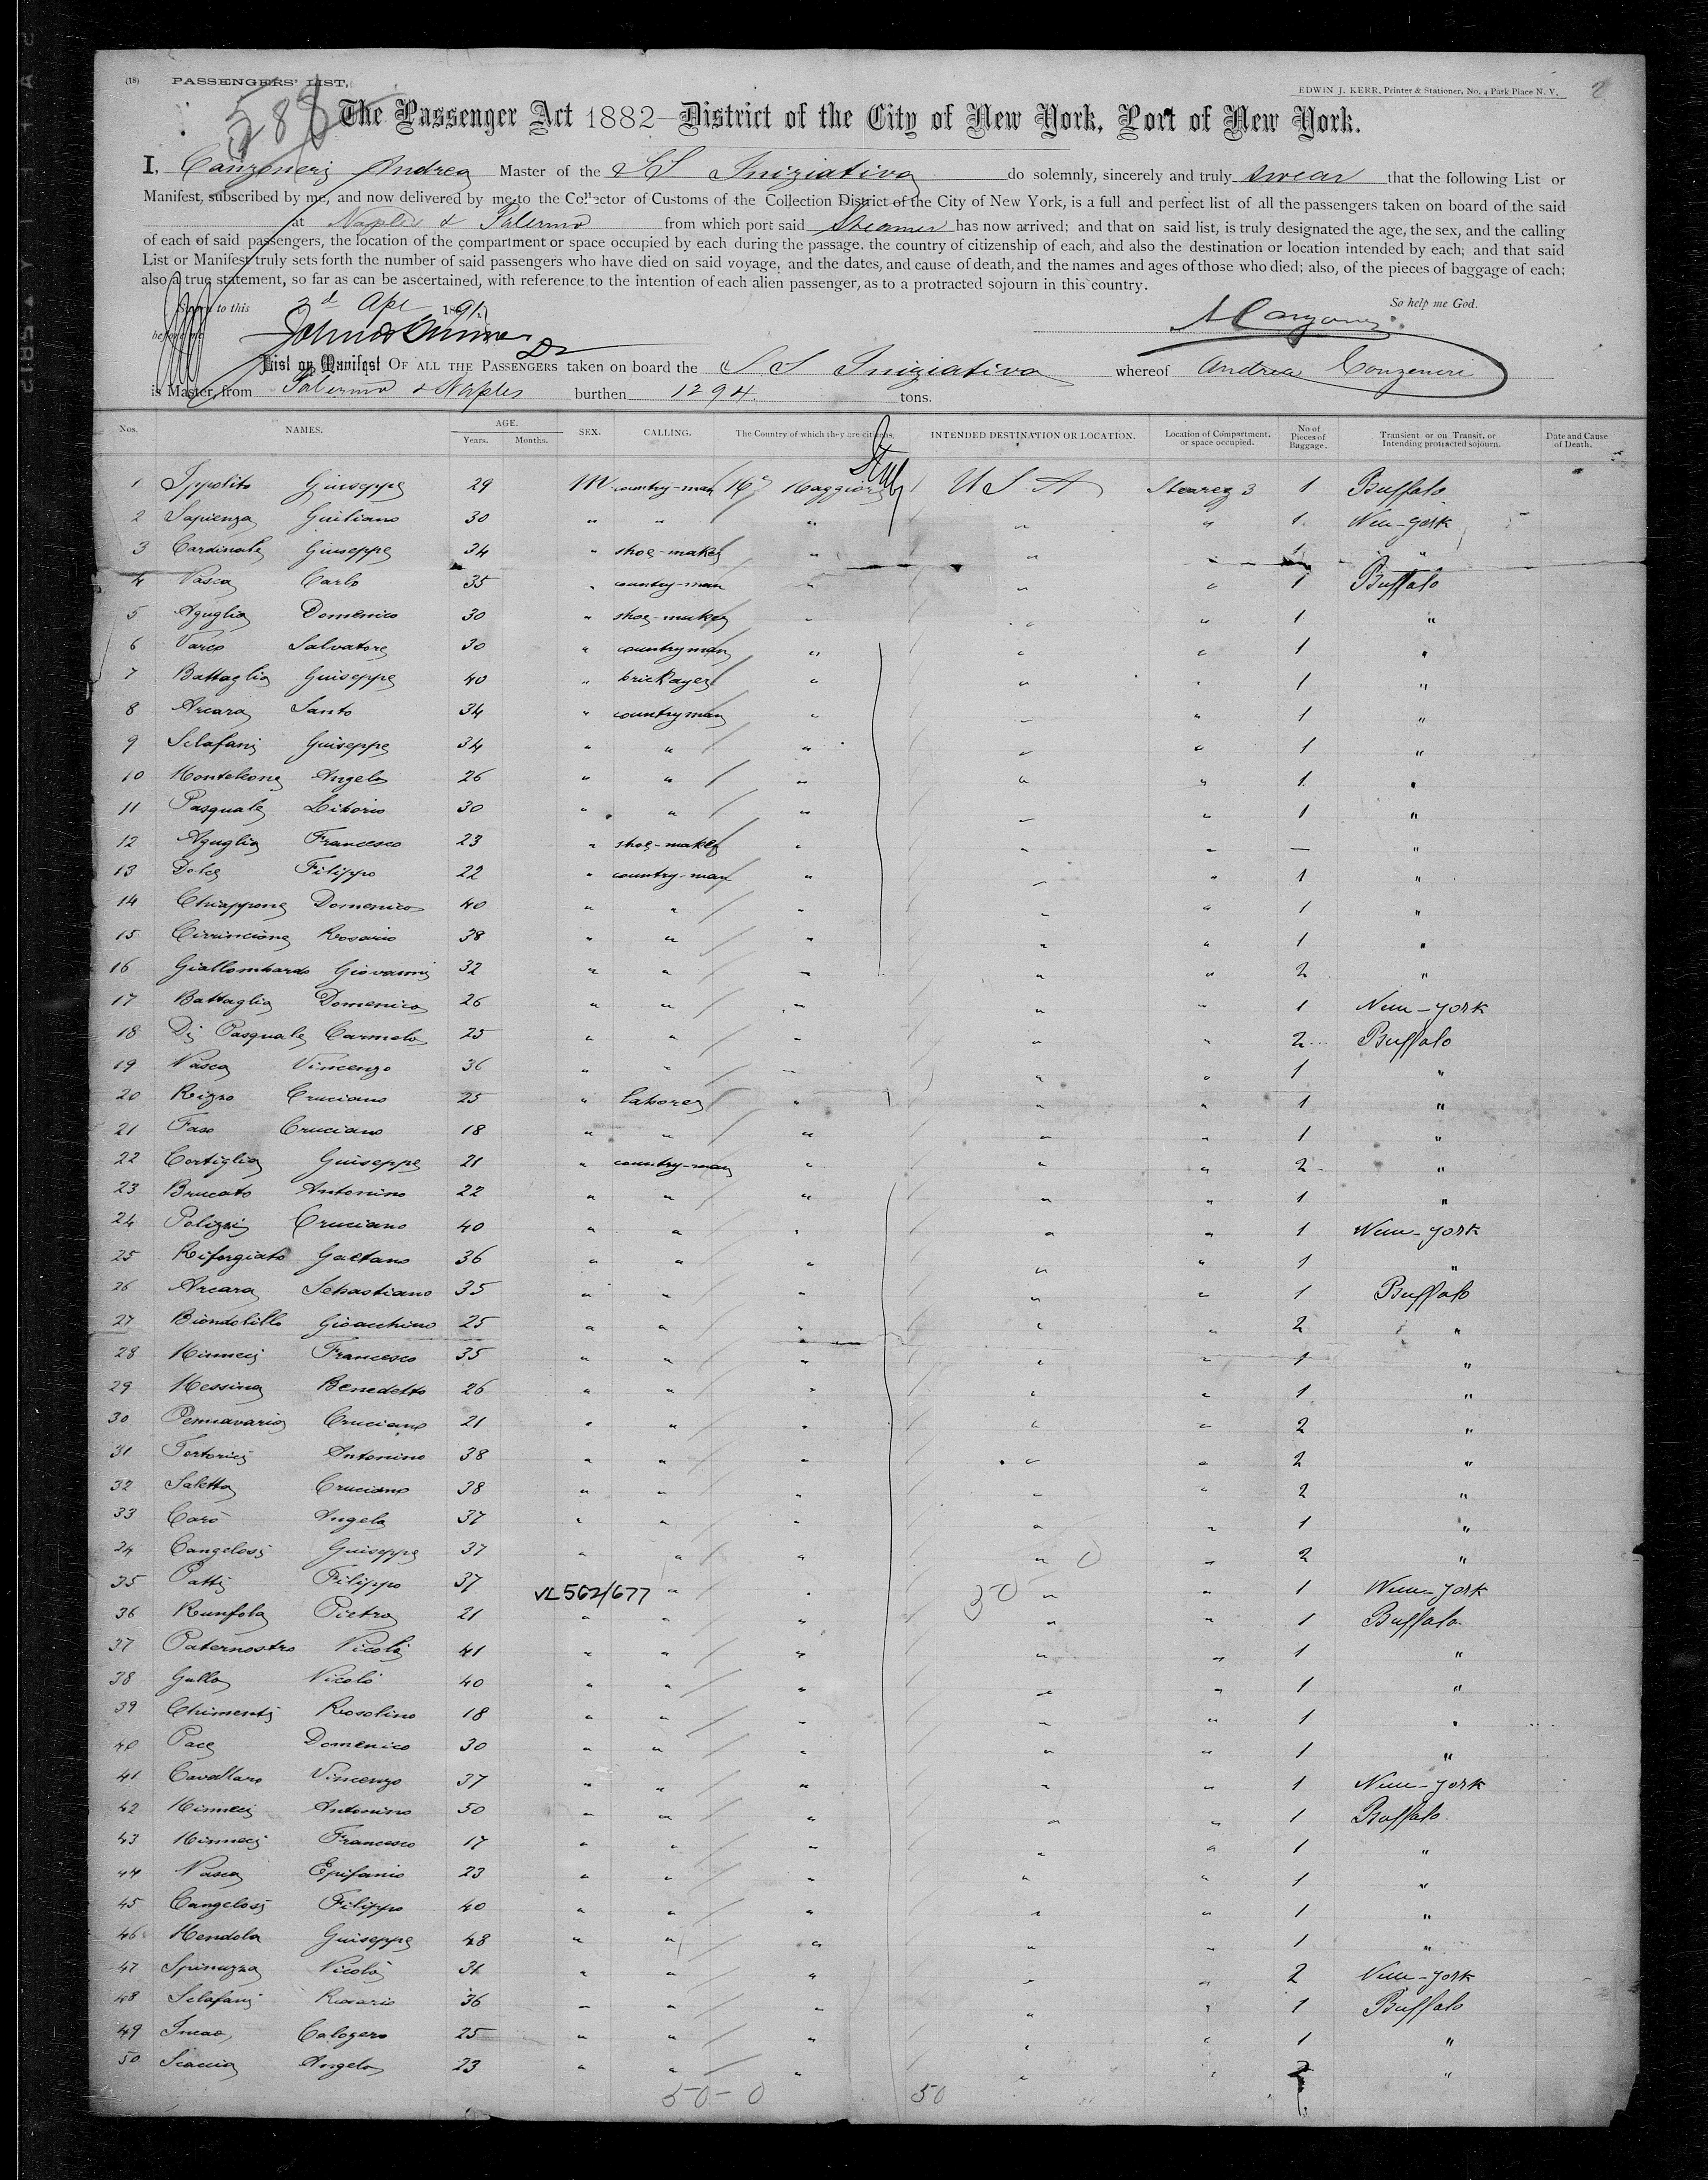 (18) PASSENGERS' LIST. EDWIN J. KERR, Printer & Stationer, No. 4 Park Place N. Y. 2
588
The Passenger Act 1882—District of the City of New York, Port of New York.
I, Canzoneri Andrea Master of the SS Iniziativa do solemnly, sincerely and truly swear that the following List or
Manifest, subscribed by me, and now delivered by me to the Collector of Customs of the Collection District of the City of New York, is a full and perfect list of all the passengers taken on board of the said
at Naples & Palermo from which port said Steamer has now arrived; and that on said list, is truly designated the age, the sex, and the calling
of each of said passengers, the location of the compartment or space occupied by each during the passage, the country of citizenship of each, and also the destination or location intended by each; and that said
List or Manifest truly sets forth the number of said passengers who have died on said voyage, and the dates, and cause of death, and the names and ages of those who died; also, of the pieces of baggage of each;
also a true statement, so far as can be ascertained, with reference to the intention of each alien passenger, as to a protracted sojourn in this country.
Sworn to this 3d Apl 1891 So help me God.
before me
List or Manifest OF ALL THE PASSENGERS taken on board the SS Iniziativa whereof Andrea Conzenere
is Master, from Palermo & Naples burthen 1294 tons.
Nos. NAMES. AGE. Years. Months. SEX. CALLING. The Country of which they are citizens. INTENDED DESTINATION OR LOCATION. Location of Compartment, or space occupied. No of Pieces of Baggage. Transient or on Transit, or Intending protracted sojourn. Date and Cause of Death.
Italy
1 Ippolito Giuseppe 29 M country-man Maggiore U S A Steareg 3 1 Buffalo
2 Sapienza Guiliano 30 " " " " " 1 New-york
3 Cardinale Giuseppe 34 " shoe-maker " " " 1 "
4 Vasca Carlo 35 " country-man " " " 1 Buffalo
5 Aguglia Domenico 30 " shoe-maker " " " 1 "
6 Varco Salvatore 30 " countryman " " " 1 "
7 Battaglia Guiseppe 40 " brickayer " " " 1 "
8 Arcara Santo 34 " countryman " " " 1 "
9 Sclafani Guiseppe 34 " " " " " 1 "
10 Monteleone Angelo 26 " " " " " 1 "
11 Pasquale Liborio 30 " " " " " 1 "
12 Aguglia Francesco 23 " shoe-maker " " " — "
13 Dolce Filippo 22 " country-man " " " 1 "
14 Chiappone Domenico 40 " " " " " 1 "
15 Cirrincione Rosario 38 " " " " " 1 "
16 Giallombardo Giovanni 32 " " " " " 2 "
17 Battaglia Domenico 26 " " " " " 1 New-york
18 Di Pasquale Carmelo 25 " " " " " 2 Buffalo
19 Vasca Vincenzo 36 " " " " " 1 "
20 Rizzo Cruciano 25 " laborer " " " 1 "
21 Faso Cruciano 18 " " " " " 1 "
22 Cortiglia Guiseppe 21 " country-man " " " 2 "
23 Brucato Antonino 22 " " " " " 1 "
24 Polizzi Cruciano 40 " " " " " 1 New-york
25 Riforgiato Gaetano 36 " " " " " 1 "
26 Arcara Sebastiano 35 " " " " " 1 Buffalo
27 Biondolillo Gioacchino 25 " " " " " 2 "
28 Minneci Francesco 35 " " " " " 1 "
29 Messina Benedetto 26 " " " " " 1 "
30 Pennavaria Cruciano 21 " " " " " 2 "
31 Tortorici Antonino 38 " " " " " 2 "
32 Saletta Cruciano 38 " " " " " 2 "
33 Caro Angelo 37 " " " " " 1 "
34 Cangelosi Guiseppe 37 " " " " " 2 "
35 Patti Filippo 37 VL 562/677 " " 30 " " 1 New-york
36 Runfola Pietro 21 " " " " " 1 Buffalo
37 Paternostro Nicolò 41 " " " " " 1 "
38 Gullo Nicolò 40 " " " " " 1 "
39 Chimenti Rosolino 18 " " " " " 1 "
40 Pace Domenico 30 " " " " " 1 "
41 Cavallaro Vincenzo 37 " " " " " 1 New-york
42 Minneci Antonino 50 " " " " " 1 Buffalo
43 Minneci Francesco 17 " " " " " 1 "
44 Vasca Epifanio 23 " " " " " 1 "
45 Cangelosi Filippo 40 " " " " " 1 "
46 Mendola Guiseppe 48 " " " " " 1 "
47 Spinuzza Nicolò 31 " " " " " 2 New-york
48 Sclafani Rosario 36 " " " " " 1 Buffalo
49 Incao Calogero 25 " " " " " 1 "
50 Scaccia Angelo 23 " " " " " 2 "
50-0 50